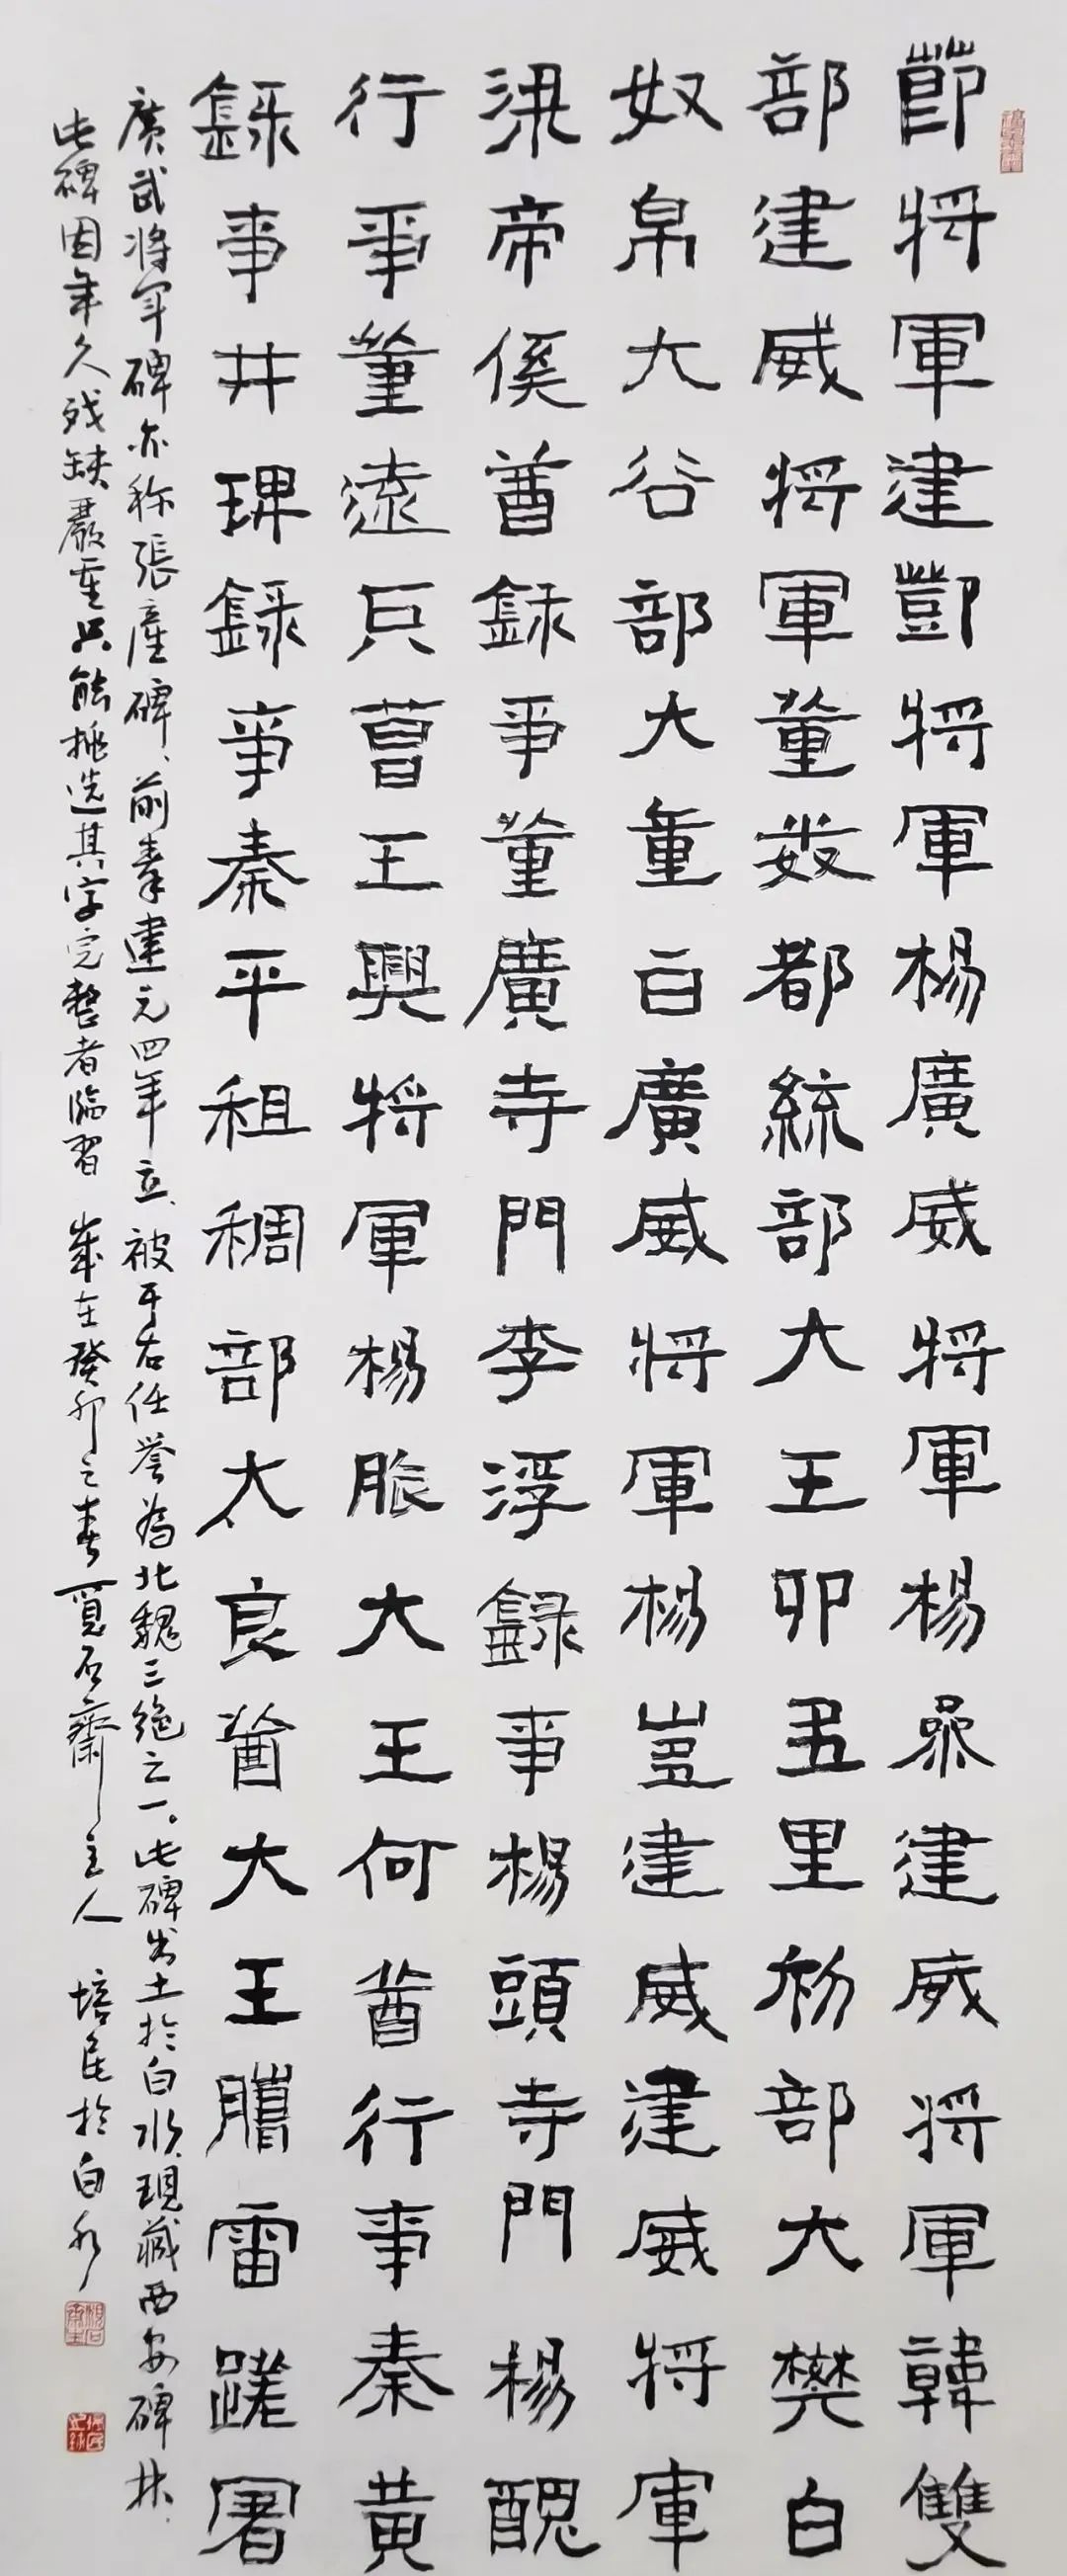 節將軍建節將軍楊廣威將軍楊 建威將軍韓雙
部建威將軍董 都統部大王卯丑里初部大樊白
奴帛大谷部大董白廣威將軍楊豈建威建威將軍
梁帝傒酋録事董廣寺門李浮録事楊頭寺門楊醜
行事董遠兵曹王興將軍楊 大王何酋行事秦黃
録事井 録事秦平租稠部大良酋大王 雷 屠
廣武將軍碑亦称張產碑、前秦建元四年立、被于右任誉為北魏三絶之一。此碑出土於白水、現藏西安碑林、
此碑因年久残缺嚴重只能挑选其字完整者臨習 歲在癸卯之春 覓石齋主人 培民於白水